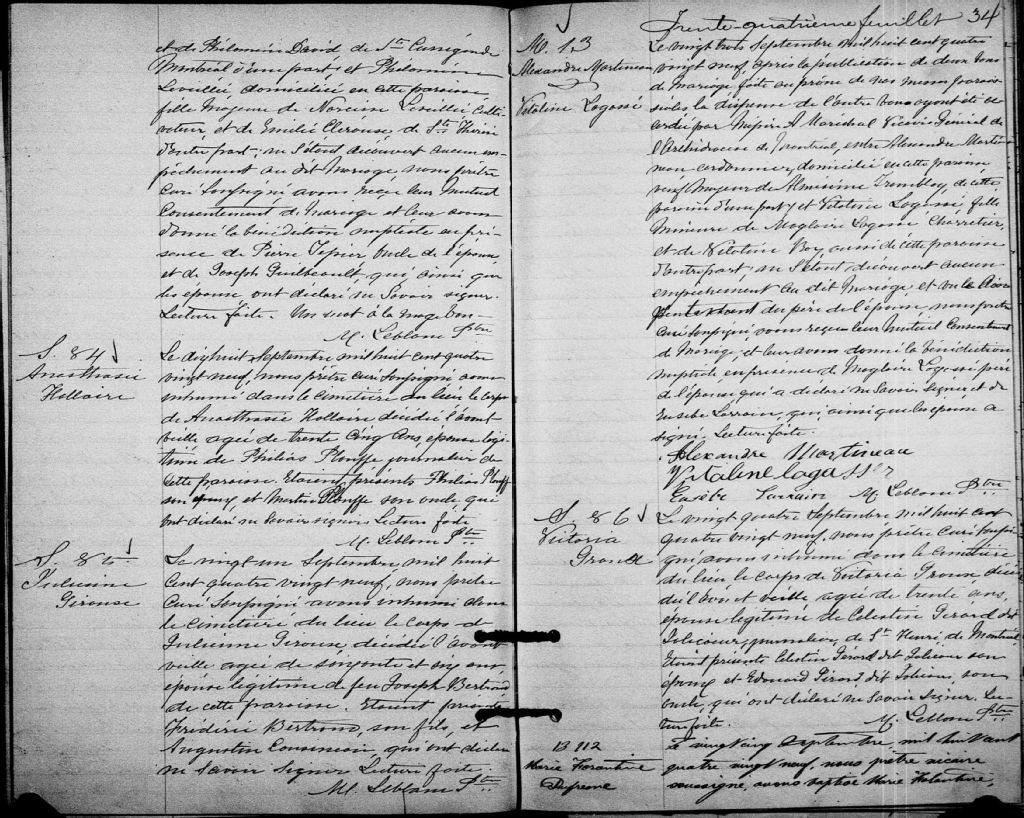 et de Philomène David de Ste Cunégonde
Montréal d'une part, et Philomène
Léveillée, domiciliée en cette paroisse,
fille mineure de Narcisse Léveillée culti-
vateur, et de Emilie Clerouse de Ste
d'autre part; ne s'étant découvert aucun em-
pêchement au dit mariage, nous prêtre
curé soussigné avons reçu leur mutuel
consentement de mariage et leur avons
donné la bénédiction nuptiale en pré-
sence de Pierre Tessier oncle de l'époux
et de Joseph Guilbeault, qui ainsi que
les époux ont déclaré ne savoir signer.
Lecture faite. Un mot à la marge bon-
M. Leblanc Ptre
S. 84
Anasthasie
Hollaire
Le dix huit Septembre mil huit cent quatre
vingt neuf, nous prêtre curé soussigné avons
inhumé dans le cimetière du lieu le corps
de Anasthasie Hollaire décédée l'avant
veille agée de trente cinq ans, épouse légi-
time de Philias Plouffe journalier de
cette paroisse. Etaient présents Philias Plouffe
son époux, et Martin Plouffe son oncle, qui
ont déclaré ne savoir signer Lecture faite
M. Leblanc Ptre
S. 85
Julienne
Girouse
Le vingt un Septembre mil huit
cent quatre vingt neuf, nous prêtre
curé soussigné avons inhumé dans
le cimetière du lieu le corps de
Julienne Girouse, décédée l'avant
veille agée de soixante et onze ans
épouse légitime de feu Joseph Bertrand
de cette paroisse. Etaient présents
Frédéric Bertrand, son fils, et
Augustin Cousineau, qui ont déclaré
ne savoir signer Lecture faite.
M. Leblanc Ptre
Trente-quatrième feuillet 34
M. 13
Alexandre Martineau
Vitaline Lagassé
Le vingt trois Septembre mil huit cent quatre
vingt neuf, après la publication de deux bans
de mariage faite au prône de nos messes parois-
siales la dispense de l'autre ban ayant été ac-
cordée par Maréchal Vicaire Général de
l'Archidiocèse de Montréal, entre Alexandre Marti-
neau cordonnier, domicilié en cette paroisse
veuf majeur de Tremblay, de cette
paroisse d'une part; et Vitaline Lagassé fille
mineure de Magloire Lagassé Charretier,
et de Vitaline Roy, aussi de cette paroisse
d'autre part; ne s'étant découvert aucun
empêchement au dit mariage et vu le con-
sentement du père de l'épouse, nous prêtre
curé soussigné, avons reçu leur mutuel consentement
de mariage, et leur avons donné la bénédiction
nuptiale en présence de Magloire Lagassé père
de l'épouse qui a déclaré ne savoir signer et de
Eusèbe Lorrain, qui ainsi que les époux a
signé. Lecture faite.
Alexandre Martineau
Vitaline lagassé
Eusèbe Lorrain M. Leblanc Ptre
S. 86
Victoria
Le vingt quatre Septembre mil huit cent
quatre vingt neuf, nous prêtre curé soussi-
gné avons inhumé dans le cimetière
du lieu le corps de Victoria
l'avant veille agée de trente ans,
épouse légitime de Celestin Gérard dit
Jolicoeur, journalier, de St Henri de Montréal
Etaient présents Celestin Gérard dit Jolicoeur son
époux et Edouard Gérard dit Jolicoeur, son
oncle, qui ont déclaré ne savoir signer. Lec-
ture faite.
M. Leblanc Ptre
B 112
Marie
Dufresne
Le vingt cinq Septembre, mil huit cent
quatre vingt neuf, nous prêtre vicaire
soussigné, avons baptisé Marie